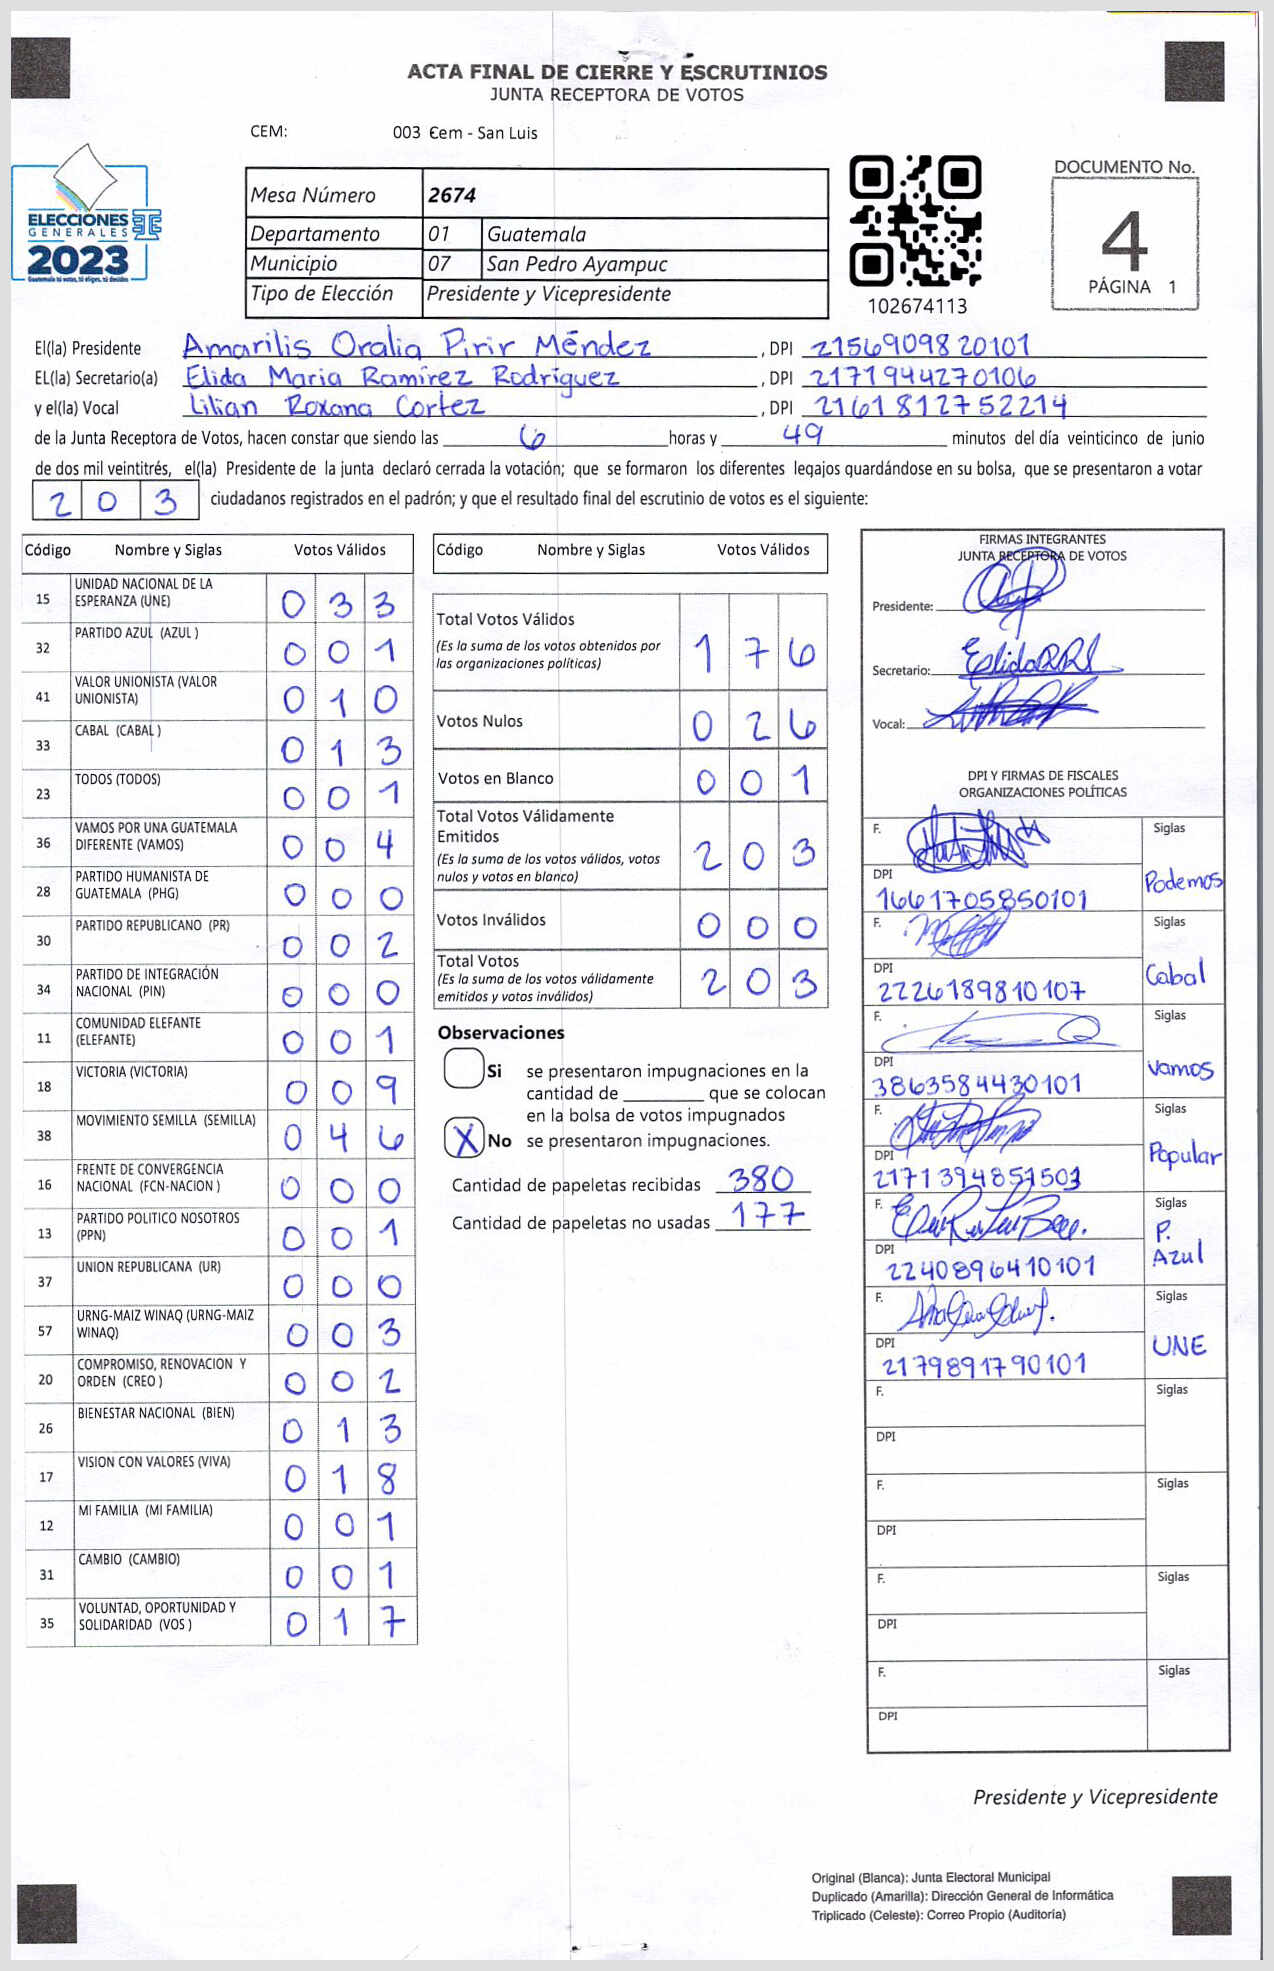 ACTA FINAL DE CIERRE Y ESCRUTINIOS
JUNTA RECEPTORA DE VOTOS
CEM: 003 Cem - San Luis
ELECCIONES
GENERALES
2023
Guatemala tú votas, tú eliges, tú decides
Mesa Número 2674
Departamento 01 Guatemala
Municipio 07 San Pedro Ayampuc
Tipo de Elección Presidente y Vicepresidente
102674113
DOCUMENTO No.
4
PÁGINA 1
El(la) Presidente Amarilis Oralia Pirir Méndez, DPI 2156909820101
EL(la) Secretario(a) Elida Maria Ramírez Rodríguez, DPI 2171944270106
y el(la) Vocal Lilian Roxana Cortez, DPI 2161812752214
de la Junta Receptora de Votos, hacen constar que siendo las 6 horas y 49 minutos del día veinticinco de junio
de dos mil veintitrés, el(la) Presidente de la junta declaró cerrada la votación; que se formaron los diferentes legajos guardándose en su bolsa, que se presentaron a votar
203 ciudadanos registrados en el padrón; y que el resultado final del escrutinio de votos es el siguiente:
Código Nombre y Siglas Votos Válidos
15 UNIDAD NACIONAL DE LA ESPERANZA (UNE) 033
32 PARTIDO AZUL (AZUL ) 001
41 VALOR UNIONISTA (VALOR UNIONISTA) 010
33 CABAL (CABAL ) 013
23 TODOS (TODOS) 001
36 VAMOS POR UNA GUATEMALA DIFERENTE (VAMOS) 004
28 PARTIDO HUMANISTA DE GUATEMALA (PHG) 000
30 PARTIDO REPUBLICANO (PR) 002
34 PARTIDO DE INTEGRACIÓN NACIONAL (PIN) 000
11 COMUNIDAD ELEFANTE (ELEFANTE) 001
18 VICTORIA (VICTORIA) 009
38 MOVIMIENTO SEMILLA (SEMILLA) 046
16 FRENTE DE CONVERGENCIA NACIONAL (FCN-NACION ) 000
13 PARTIDO POLITICO NOSOTROS (PPN) 001
37 UNION REPUBLICANA (UR) 000
57 URNG-MAIZ WINAQ (URNG-MAIZ WINAQ) 003
20 COMPROMISO, RENOVACION Y ORDEN (CREO ) 002
26 BIENESTAR NACIONAL (BIEN) 013
17 VISION CON VALORES (VIVA) 018
12 MI FAMILIA (MI FAMILIA) 001
31 CAMBIO (CAMBIO) 001
35 VOLUNTAD, OPORTUNIDAD Y SOLIDARIDAD (VOS ) 017
Código Nombre y Siglas Votos Válidos
Total Votos Válidos 176
(Es la suma de los votos obtenidos por
las organizaciones políticas)
Votos Nulos 026
Votos en Blanco 001
Total Votos Válidamente
Emitidos 203
(Es la suma de los votos válidos, votos
nulos y votos en blanco)
Votos Inválidos 000
Total Votos 203
(Es la suma de los votos válidamente
emitidos y votos inválidos)
Observaciones
Si se presentaron impugnaciones en la
cantidad de ________ que se colocan
en la bolsa de votos impugnados
X No se presentaron impugnaciones.
Cantidad de papeletas recibidas 380
Cantidad de papeletas no usadas 177
FIRMAS INTEGRANTES
JUNTA RECEPTORA DE VOTOS
Presidente:
Secretario:
Vocal:
DPI Y FIRMAS DE FISCALES
ORGANIZACIONES POLÍTICAS
F. Siglas Podemos
DPI 1661705850101
F. Siglas Cabal
DPI 2226189810107
F. Siglas Vamos
DPI 3863584430101
F. Siglas Popular
DPI 2171394851503
F. Siglas P. Azul
DPI 2240896410101
F. Siglas UNE
DPI 2179891790101
F. Siglas
DPI
F. Siglas
DPI
F. Siglas
DPI
F. Siglas
DPI
Presidente y Vicepresidente
Original (Blanca): Junta Electoral Municipal
Duplicado (Amarilla): Dirección General de Informática
Triplicado (Celeste): Correo Propio (Auditoría)